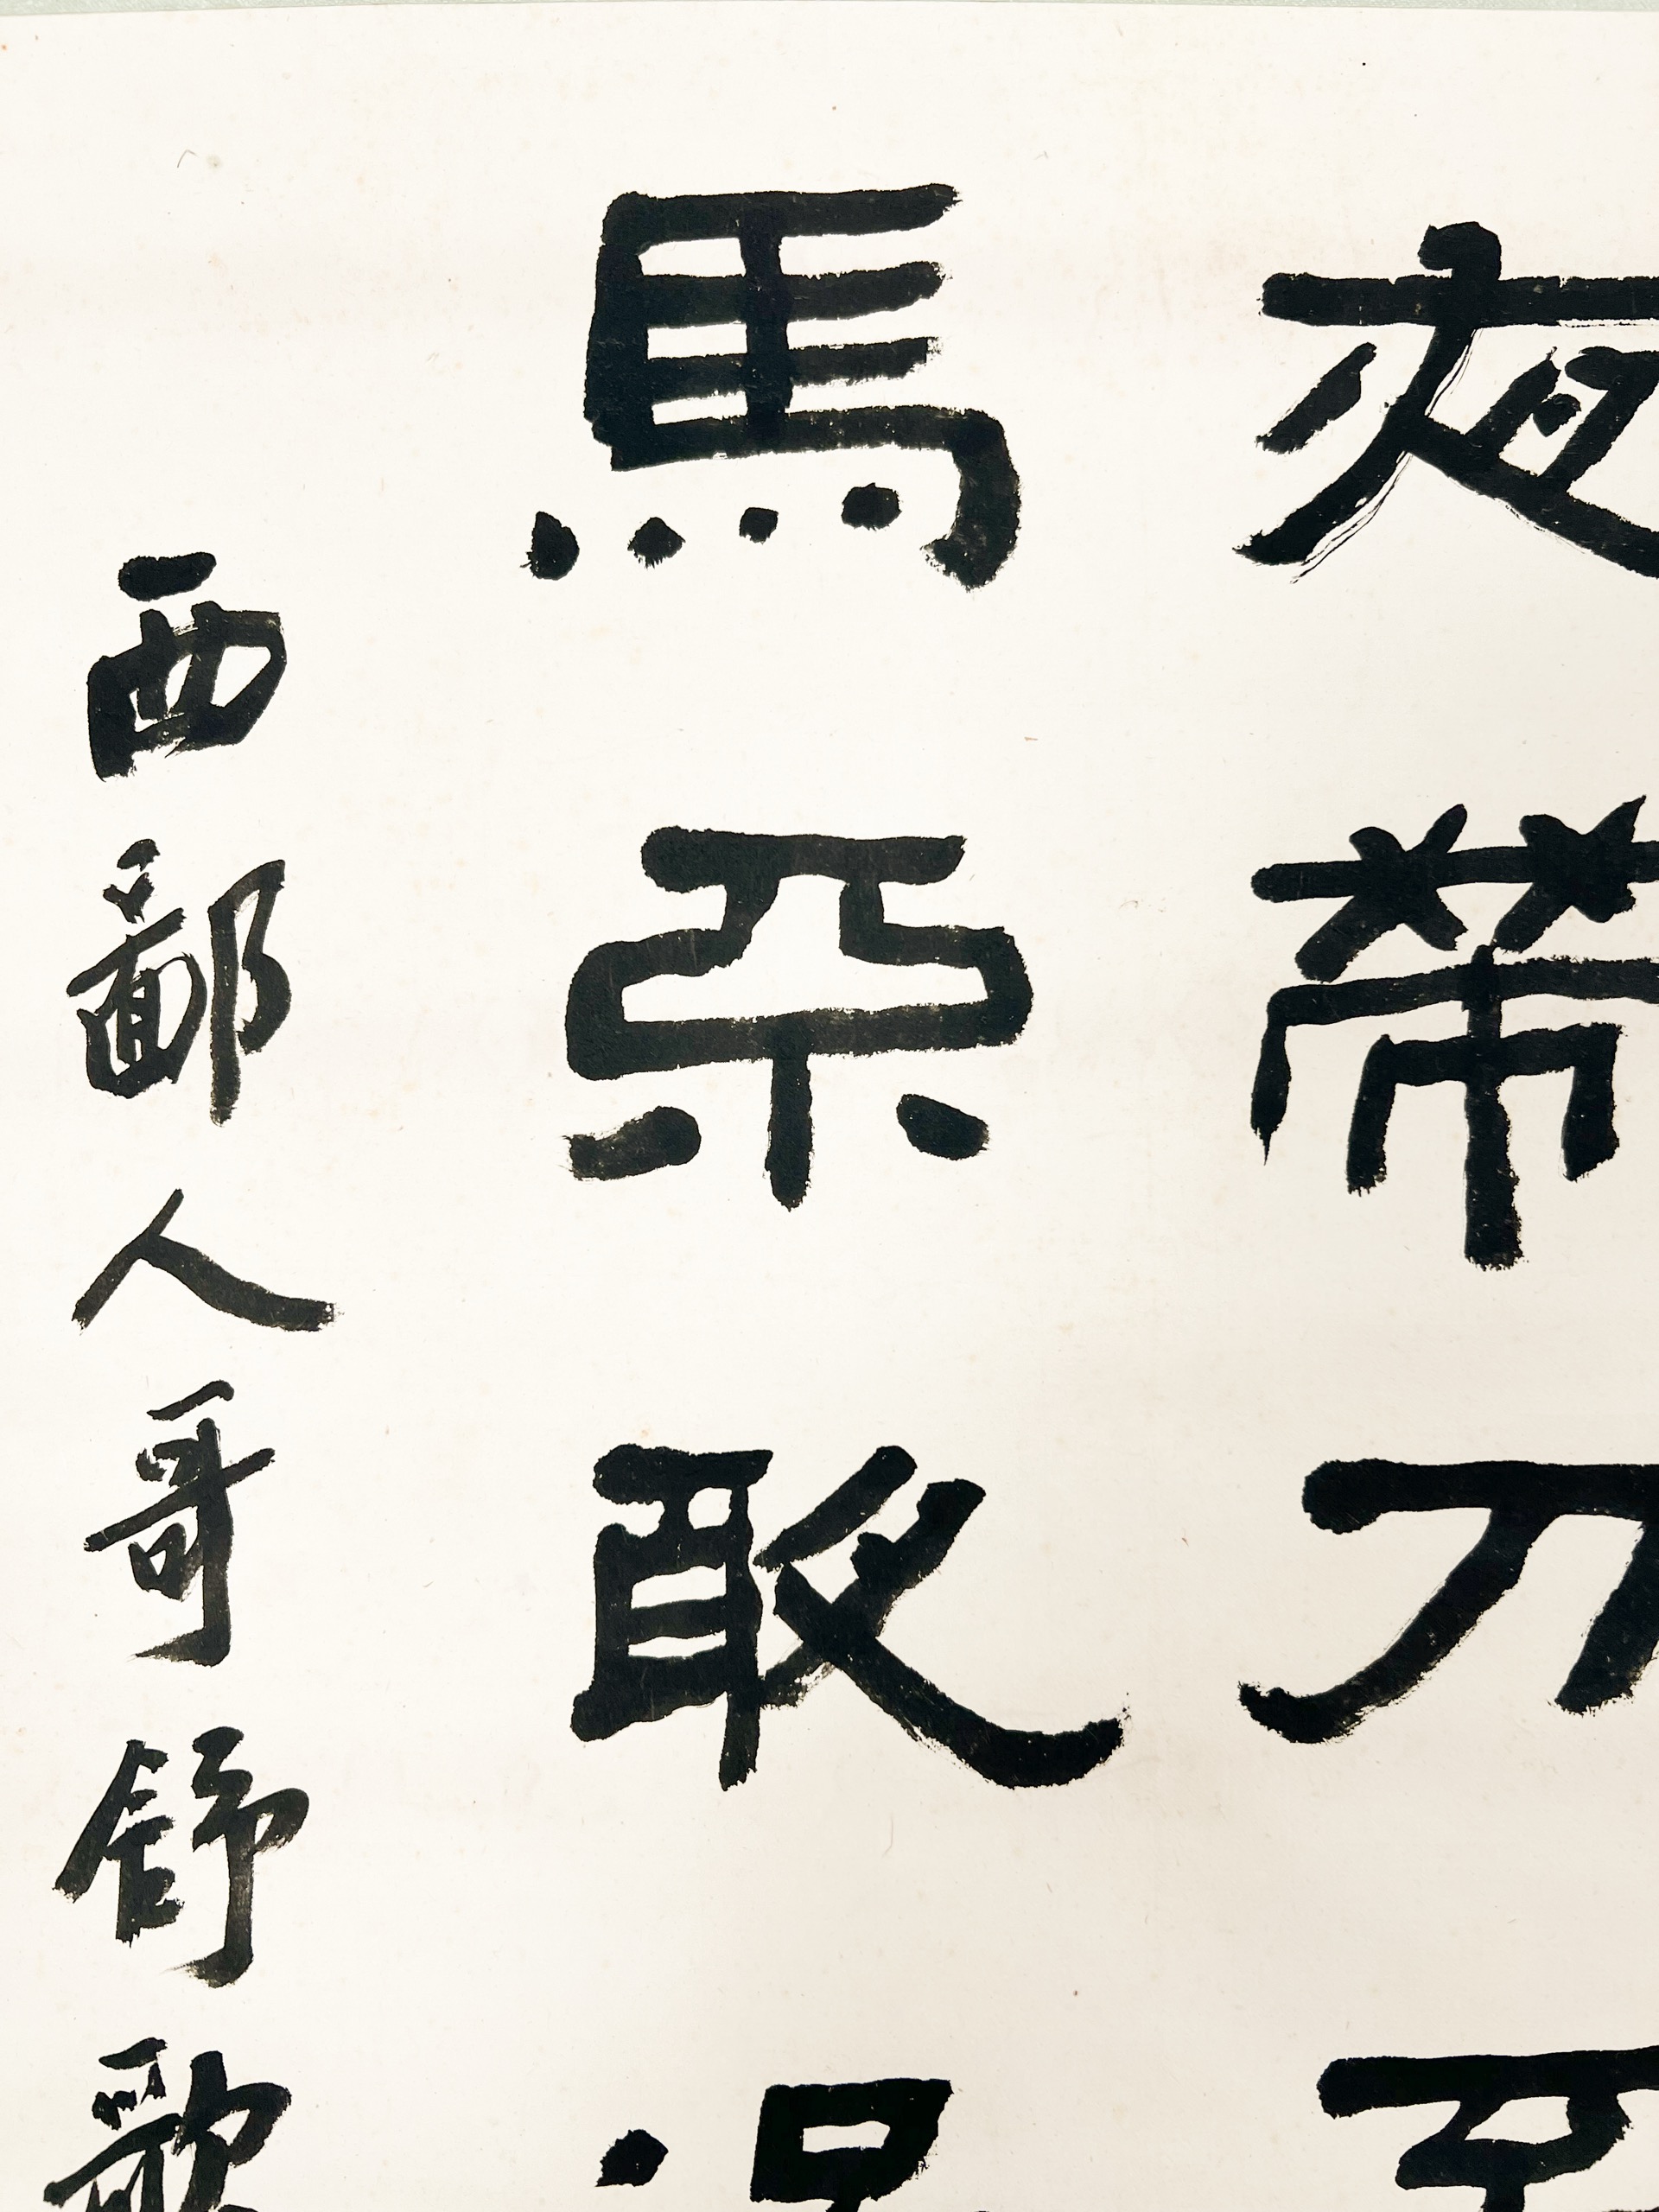 夜帶刀至
馬不敢過
西鄙人哥舒歌